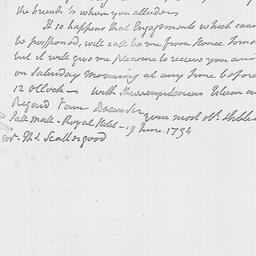 the friends to whom you allude
It so happens that Engagements which cannot
be postponed, will call me from Home tomo
but it will give me pleasure to receive you and
on Saturday Morning at any time before
12 oClock – With Esteem and
Regard I am Dear Sir your most obt. Hble
Pall Mall – Royal Hotel – 19 June 1794
Mr. Ths. Scattergood